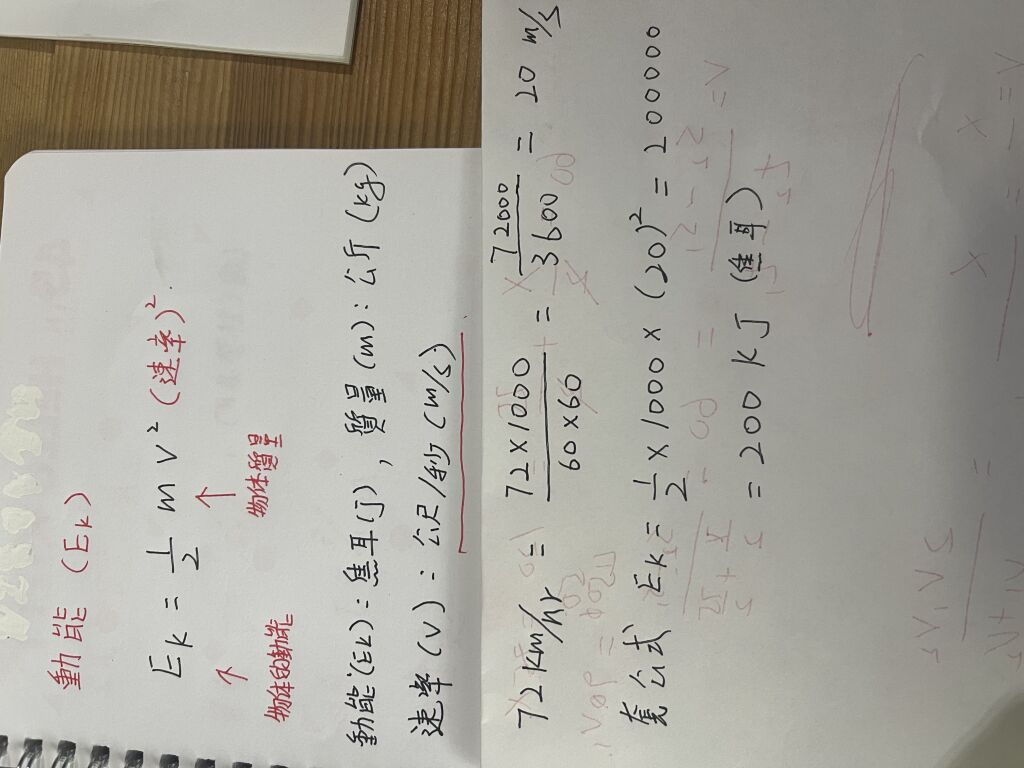 動能 (Ek)
Ek = 1/2 m v² (速率)²
↑ ↑
物体的動能 物体質量
動能(Ek):焦耳(J), 質量(m):公斤(kg)
速率(v):公尺/秒(m/s)
72km/hr = 72×1000/60×60 = 72000/3600 = 20 m/s
套公式 Ek = 1/2 × 1000 × (20)² = 200000
= 200 KJ (焦耳)